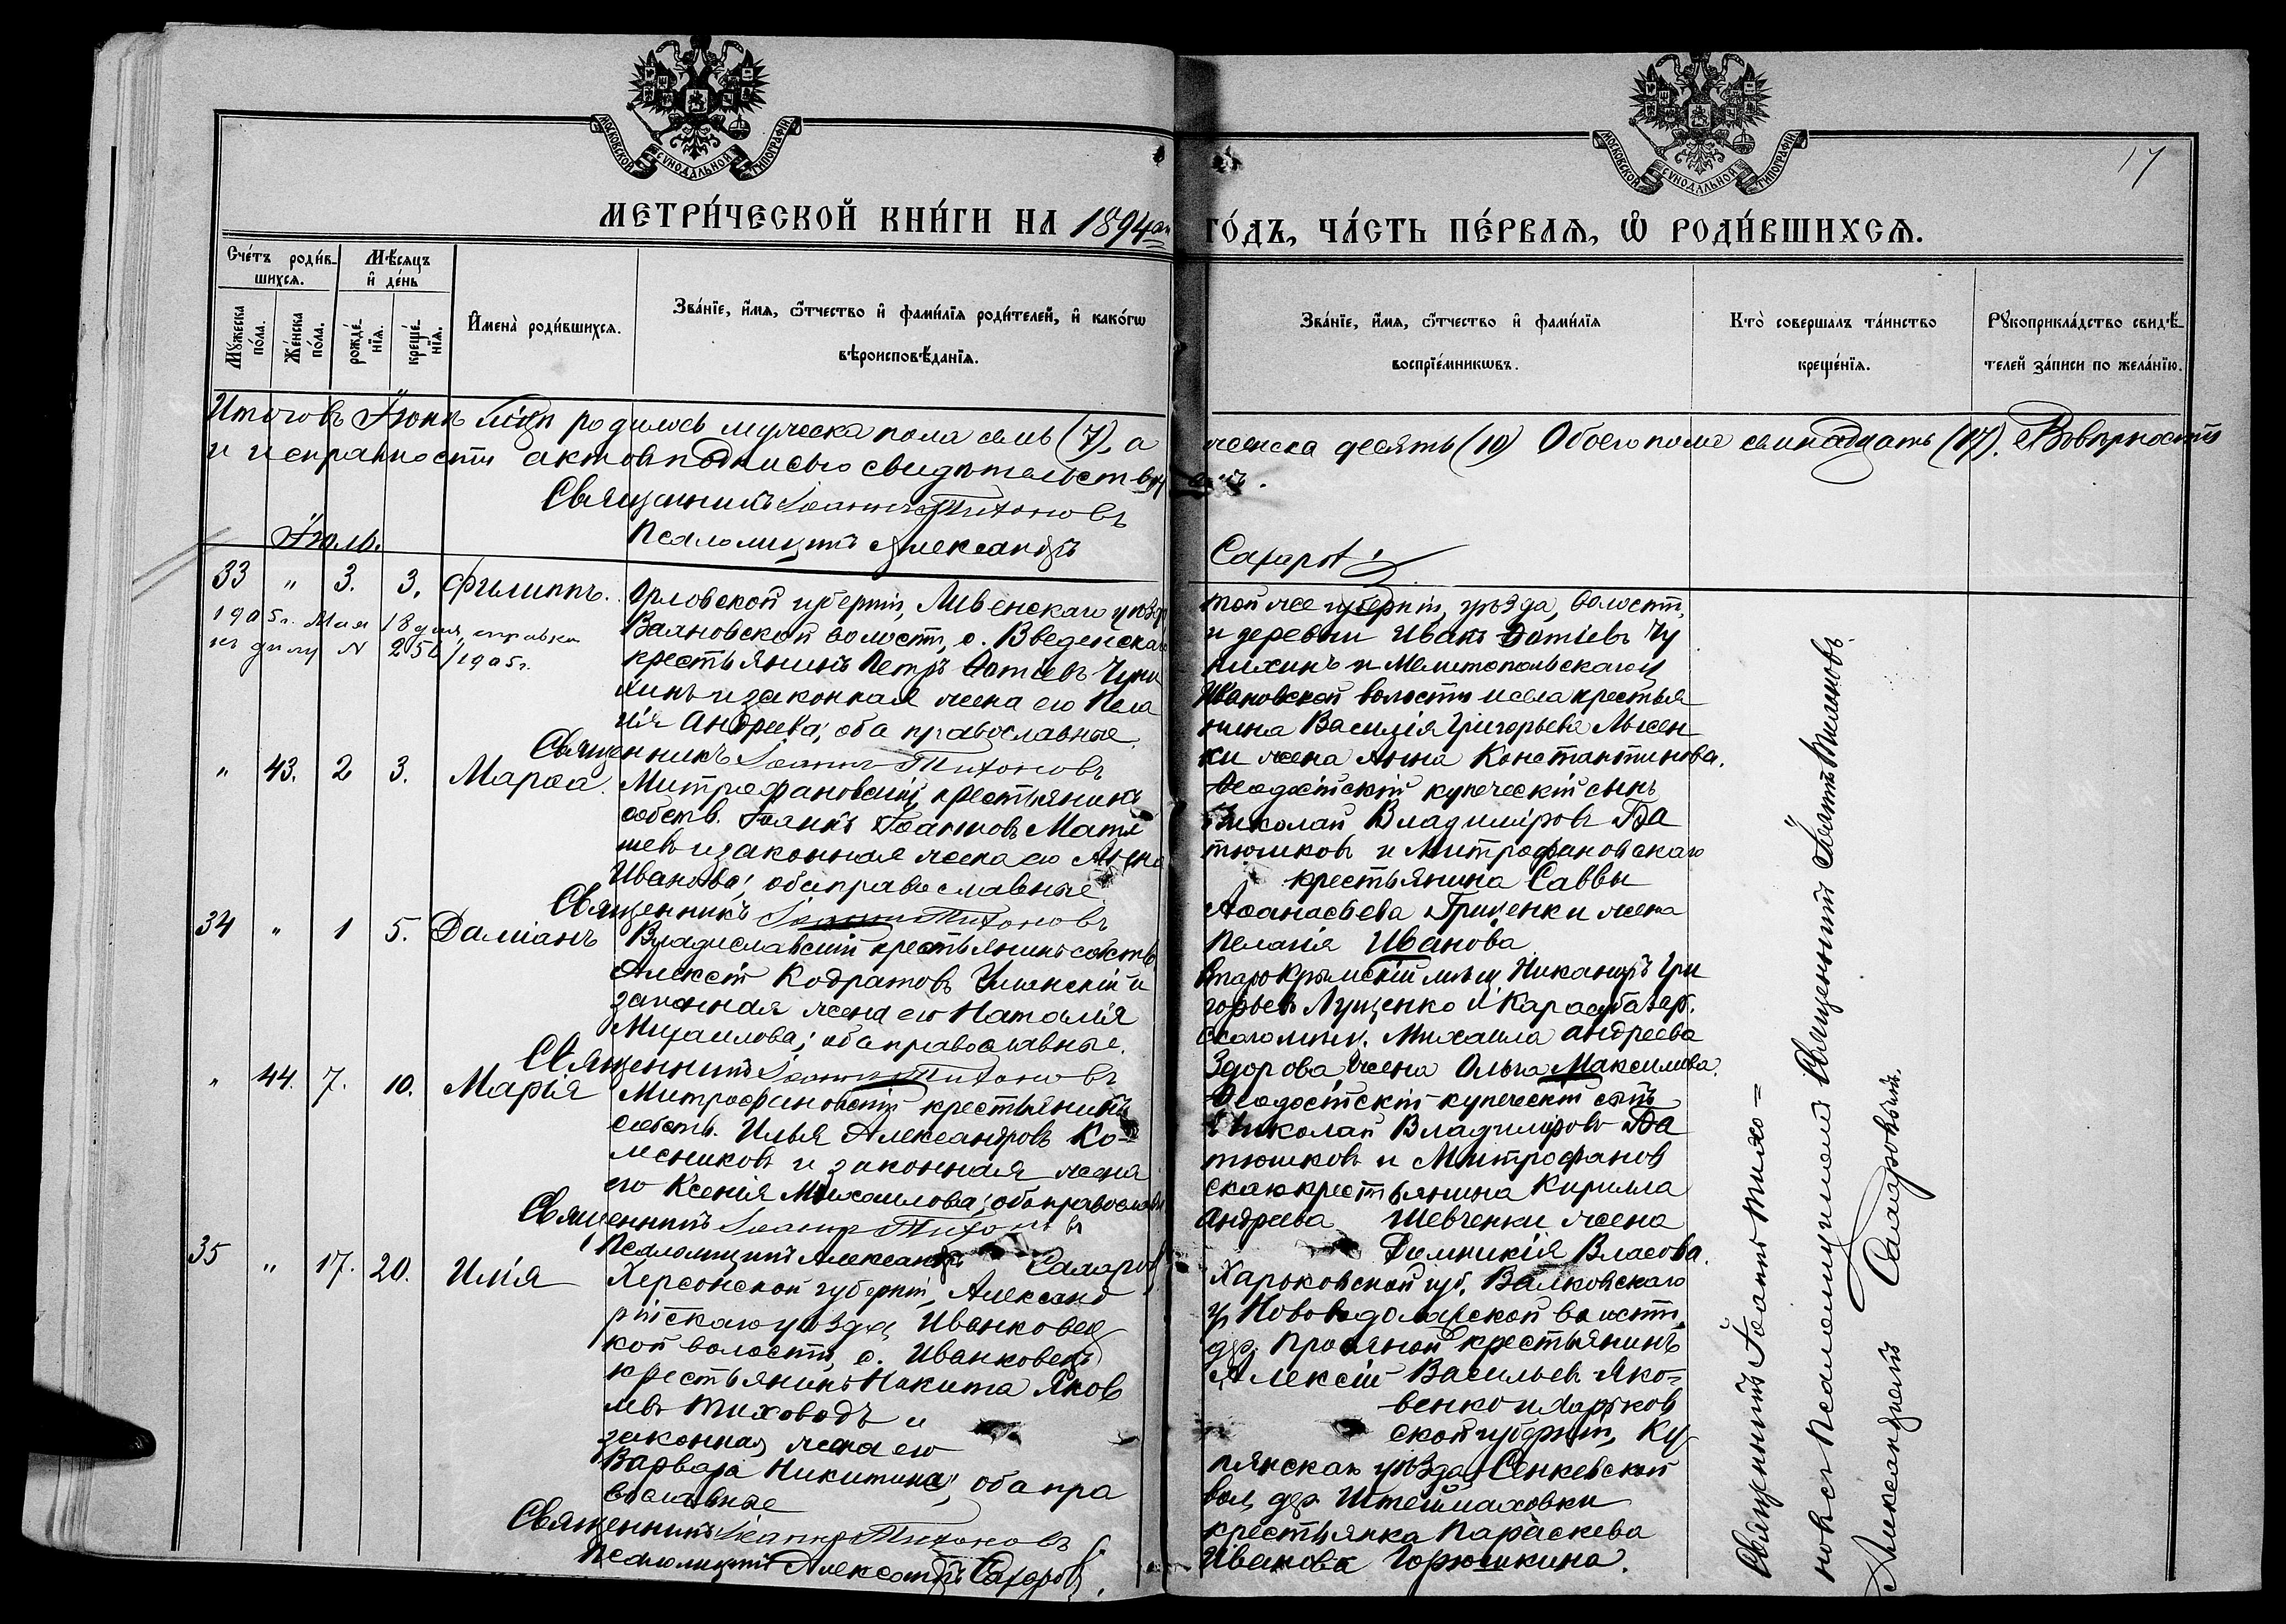 МОСКОВСКОЙ СѴНОДАЛЬНОЙ ТИПОГРАФІИ
МОСКОВСКОЙ СѴНОДАЛЬНОЙ ТИПОГРАФІИ
17
МЕТРИ́ЧЕСКОЙ КНИ́ГИ НА 1894 ГО́ДЪ, ЧА́СТЬ ПЕ́РВАѦ, Ѽ РОДИ́ВШИХСѦ.
Сче́тъ роди́в-
шихсѧ.
Мѣ́сѧцъ
и҆ де́нь
Мꙋ́жеска по́ла.
Же́нска по́ла.
рожде́-нїѧ.
креще́-нїѧ.
И҆мена̀ роди́вшихсѧ.
Зва́нїе, и҆́мѧ, ѻ҆́тчество и҆ фами́лїѧ роди́телей, и҆ како́гѡ
вѣроисповѣ́данїѧ.
Зва́нїе, и҆́мѧ, ѻ҆́тчество и҆ фами́лїѧ
воспрїе́мникѡвъ.
Кто̀ соверша́лъ та́инство
креще́нїѧ.
Рꙋкоприкла́дство свидѣ́-
телей за́писи по жела́нїю.
Итого въ Іюнѣ м-цѣ родилось мужеска пола семь (7), а женска десять (10) Обоего пола семнадцать (17). Въ вѣрности
и исправности актов подписью свидѣтельствуемъ.
Священникъ Іоаннъ Тихоновъ
Псаломщикъ Александръ Сахаровъ
Іюль.
33 " 3. 3. Филиппъ.
1905 г. Мая 18 дня, справка
къ дѣлу N
/1905 г.
Орловской губерніи, Ливенскаго уѣзда
волости, с. Введенскаго
крестьянинъ Петръ Фотіевъ Чуни
хинъ и законная жена его Пела
гія Андреева; оба православные.
Священникъ Іоаннъ Тихоновъ
той же губерніи, уѣзда, волости,
и деревни Иванъ Фотіевъ Чу
нихинъ и Мелитопольскаго у
Ивановской волости и села крестья
нина Василія Григорьева Лысен
ки жена Анна Константинова.
" 43. 2 3. Марѳа.
Митрофановскій крестьянинъ
собств. Іоаннъ Іоанновъ Матю
шевъ и законная жена его
Иванова; оба православные
Священникъ Іоаннъ Тихоновъ
Ѳеодосійскій купеческій сынъ
Николай Владиміровъ Ба
тюшковъ и Митрофановскаго
крестьянина Саввы
Аѳанасьева Гриценки жена
Пелагія Иванова
34 " 1 5. Даміанъ
Владиславскій крестьянинъ собств.
Алексѣй Кодратовъ и
законная жена его Наталія
Михаилова; оба православные.
Священникъ Іоаннъ Тихоновъ
Старокрымскій мѣщ. Никаноръ Гри
горьевъ Луценко и Карасубазар.
скаго мѣщ. Михаила Андреева
Здорова жена Ольга Максимова.
" 44. 7. 10. Марія
Митрофановскій крестьянинъ
собств. Илья Александровъ Ко-
лесниковъ и законная жена
его Ксенія Михаилова; оба православн.
Священникъ Іоаннъ Тихоновъ
Псаломщикъ Александръ Сахаровъ
Ѳеодосійскій купеческій сынъ
Николай Владиміровъ Ба
тюшковъ и Митрофанов
скаго крестьянина Кирилла
Андреева Шевченки жена
Домникія Власова.
35 " 17. 20. Илія
Херсонской губерніи, Александ
рійскаго уѣзда, Иванковец
кой волости, с. Иванковецъ
крестьянинъ Никита Яков
левъ Тиховодъ и
законная жена его
Варвара Никитина; оба пра
вославные
Священникъ Іоаннъ Тихоновъ
Псаломщикъ Александръ Сахаровъ.
Харьковской губ. Валковскаго
у. Нововодолажской волости,
дер. Просяной крестьянинъ
Алексій Васильевъ Яко-
венко и Харьков
ской губерніи, Ку
пянскаго уѣзда Сенкевской
вол. дер.
крестьянка Параскева
Иванова Горюшкина.
Священникъ Іоаннъ Тихо=
новъ съ Псаломщикомъ Священникъ Іоаннъ Тихоновъ.
Александромъ Сахаровымъ.